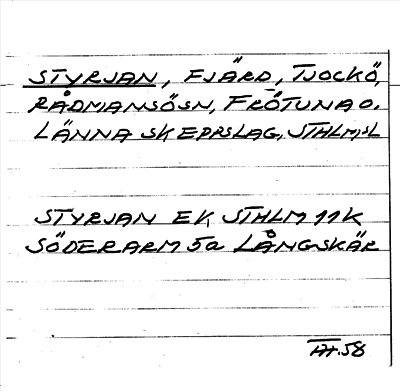 STYRJAN, FJÄRD, TJOCKÖ,
RÅDMANSÖSN, FRÖTUNA O.
LÄNNA SKEPPSLAG, STHLM,SL
STYRJAN EK, STHLM 11K
SÖDERARM 5a LÅNGSKÄR
58